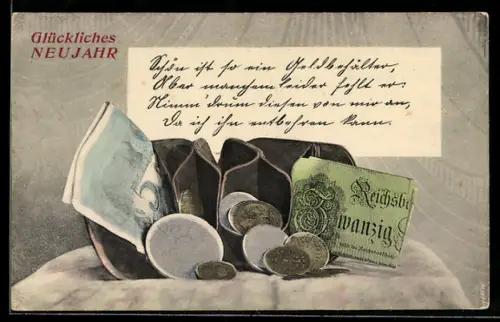 Glückliches
NEUJAHR
Schön ist so ein Geldbehälter,
Aber manchem leider fehlt er.
Nimm' drum diesen von mir an,
Da ich ihn entbehren kann.
5
Reichsb
Zwanzig